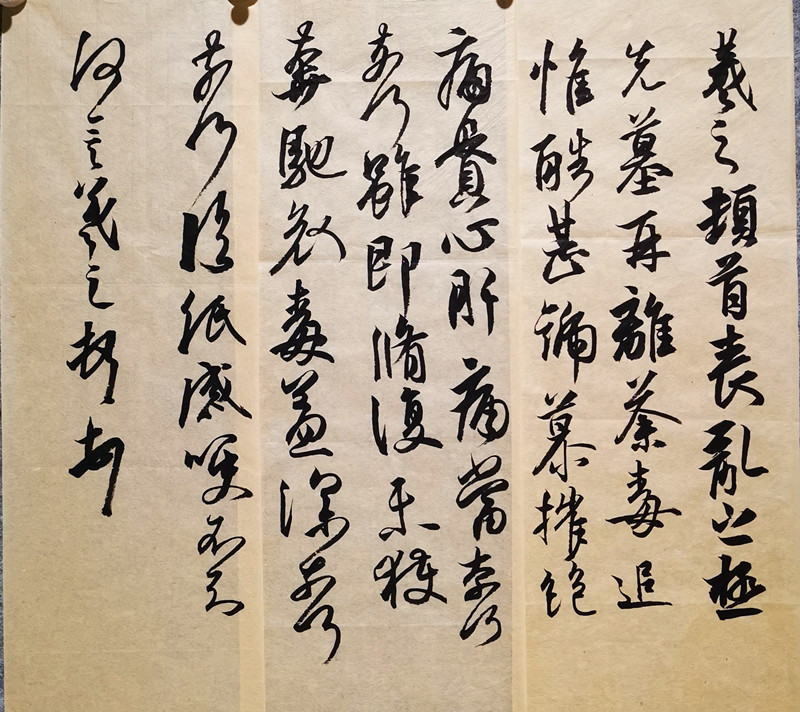 羲之頓首喪亂之極
先墓再離荼毒追
惟酷甚號慕摧絶
痛貫心肝痛當奈何
奈何雖即脩復未獲
奔馳哀毒益深奈何
奈何臨紙感哽不知
何言羲之頓首